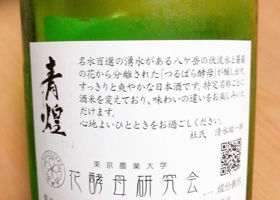 青煌
名水百選の湧水がある八ケ岳の伏流水と薔薇
の花から分離された「つるばら酵母」が醸します。
すっきりと爽やかな日本酒です。特定名称ごとに
酒米を変えており、味わいの違いをお楽しみいた
だけます。
心地よいひとときをお過ごしください。
杜氏 清水
東京農業大学
花酵母研究会